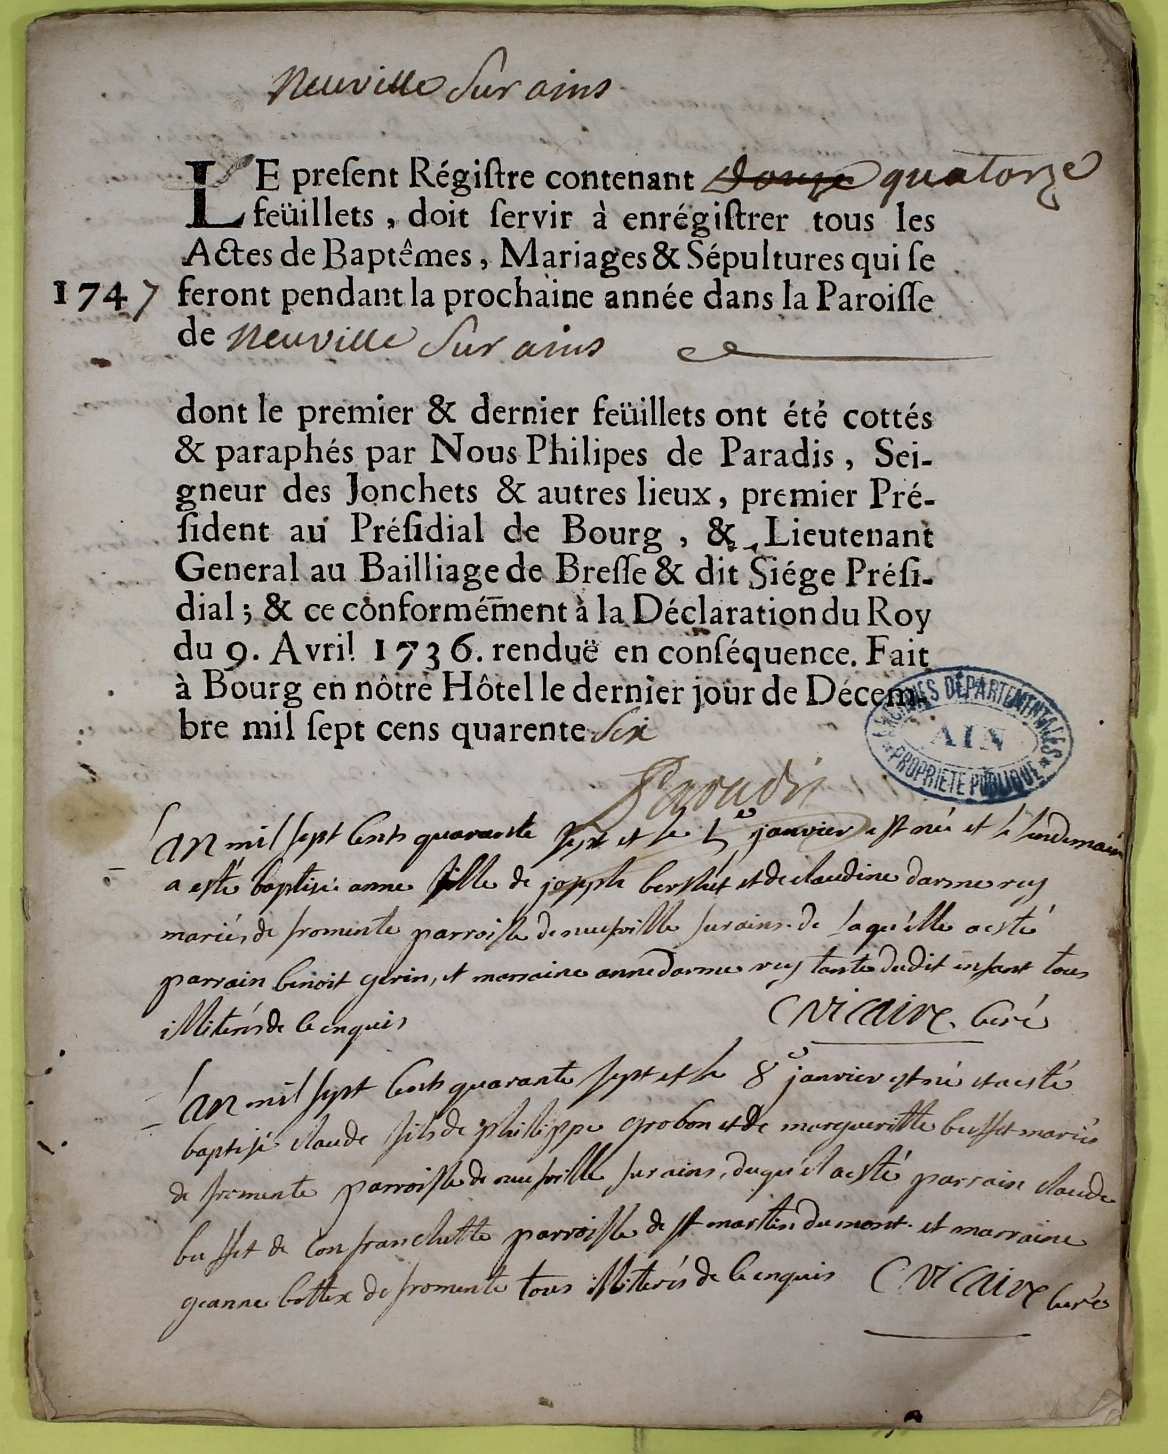 Neuville Sur ains
LE preſent Régiſtre contenant douze quatorze
feüillets, doit ſervir à enrégiſtrer tous les
Actes de Baptêmes, Mariages & Sépultures qui ſe
1747 feront pendant la prochaine année dans la Paroiſſe
de Neuville Sur ains
dont le premier & dernier feüillets ont été cottés
& paraphés par Nous Philipes de Paradis, Sei-
gneur des Jonchets & autres lieux, premier Pré-
ſident au Préſidial de Bourg, & Lieutenant
General au Bailliage de Breſſe & dit Siége Préſi-
dial; & ce conformém̄ent à la Déclaration du Roy
du 9. Avril 1736. renduë en conſéquence. Fait
à Bourg en nôtre Hôtel le dernier jour de Décem-
bre mil ſept cens quarente Six
ARCHIVES DÉPARTEMENTALES
AIN
PROPRIÉTÉ PUBLIQUE
Paradis
L'an mil sept cents quarante sept et le 5e janvier est née et le lendemain
a esté baptisée anne fille de joseph berthet et de claudine darmerey
mariés de fromente parroisse de neufville sur ains. de laquelle a esté
parrain benoit gerin, et marraine anne darmerey tante dudit enfant tous
illiterés de ce enquis
C Vicaire curé
L'an mil sept cents quarante sept et le 8e janvier est né et a esté
baptisé claude fils de philippe grobon et de margueritte busset mariés
de fromente parroisse de neufville sur ains, duquel a esté parrain claude
busset de confranchette parroisse de st martin du mont. et marraine
jeanne bottex de fromente tous illiterés de ce enquis C Vicaire curé